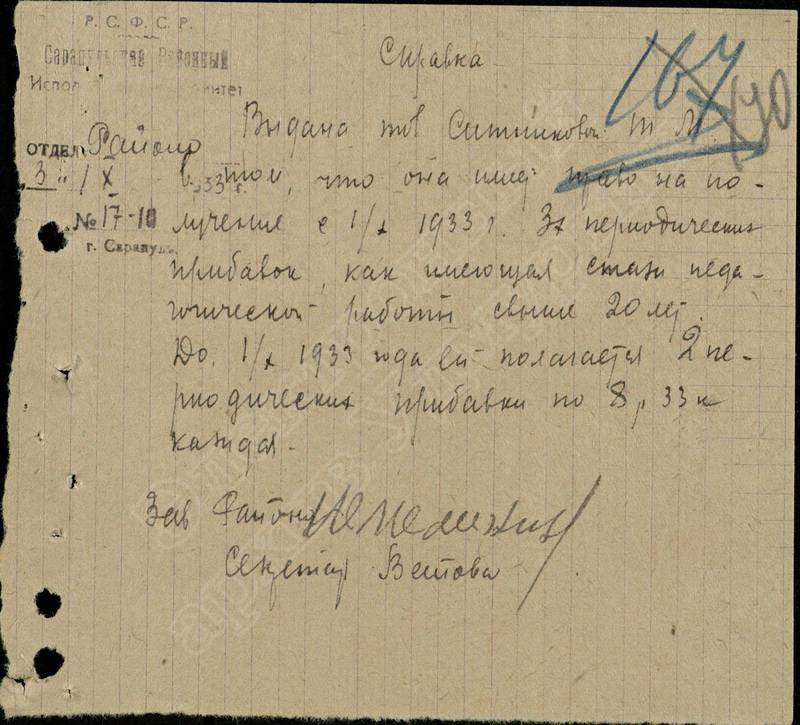 Р. С. Ф. С. Р.
Сарапульский Районный
Испол итет
ОТДЕЛ Районо
3 " / X 1933 г.
№ 17-10
г. Сарапул
167
170
Справка
Выдана тов Ситниковой Т М.
в том, что она имеет право на по-
лучение с 1/X 1933 г. 3х периодических
прибавок, как имеющая стаж педа-
гогической работы свыше 20 лет.
До 1/X 1933 года ей полагается 2 пе-
риодических прибавки по 8 р, 33 к
каждая.
Зав Районо
Секретарь